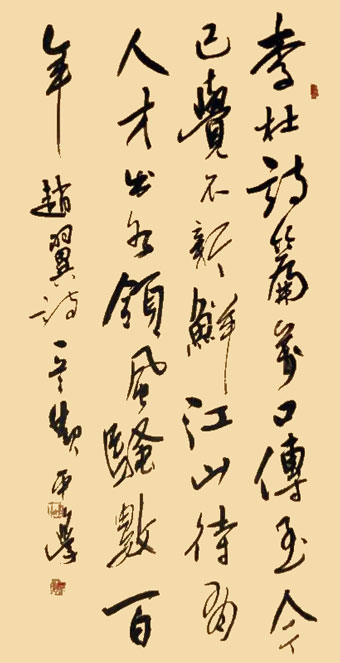 李杜詩篇萬口傳至今
已覺不新鮮江山待有
人才出各領風騷數百
年 趙翼詩